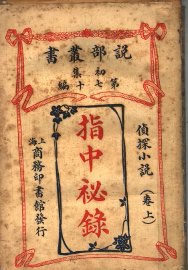 說部叢書
初集
第七十編
偵探小說（卷上）
指中祕錄
上海商務印書館發行